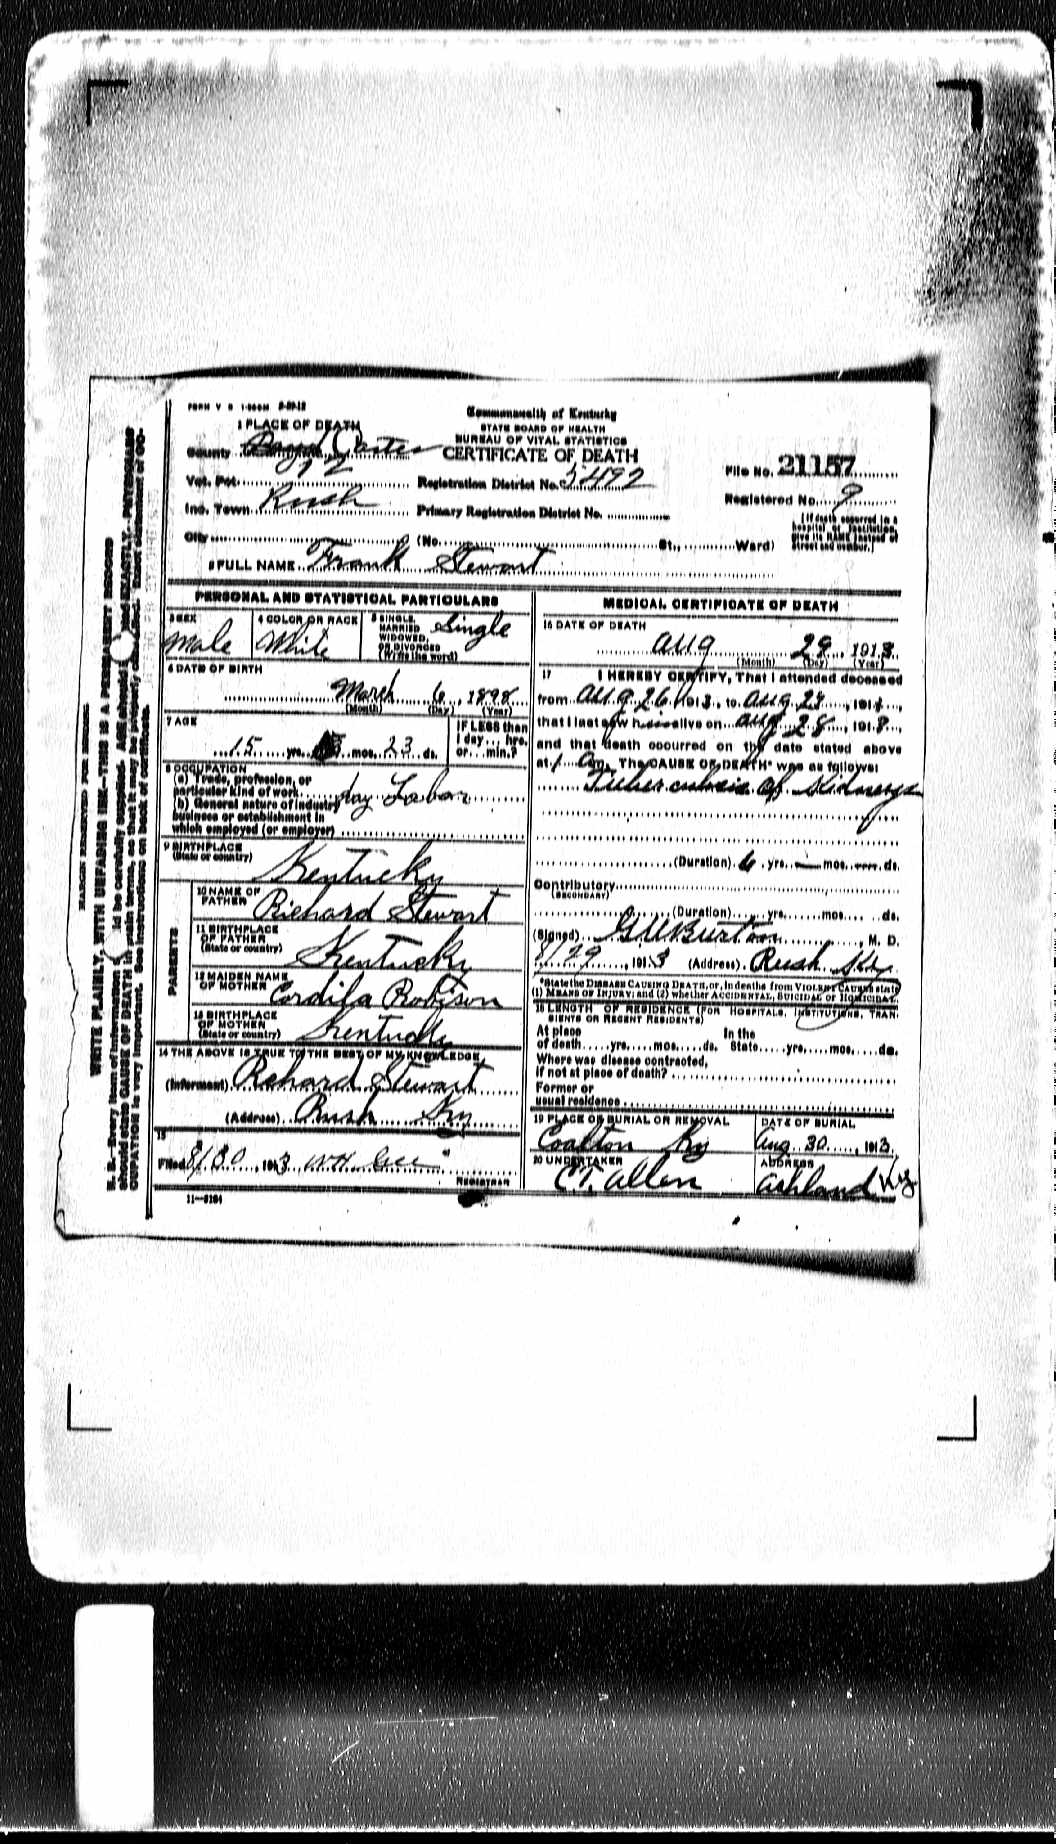 FORM V S 1-500M 8-20-12
Commonwealth of Kentucky
STATE BOARD OF HEALTH
BUREAU OF VITAL STATISTICS
CERTIFICATE OF DEATH
1 PLACE OF DEATH
County Boyd Carter
Vot. Pct. 12
Inc. Town Rush
City (No. St., Ward)
Registration District No. 5492
Primary Registration District No.
File No. 21157
Registered No. 9
[If death occurred in a
hospital or institution,
give its NAME instead of
street and number.]
2 FULL NAME Frank Stewart
PERSONAL AND STATISTICAL PARTICULARS
3 SEX
Male
4 COLOR OR RACE
White
5 SINGLE,
MARRIED
WIDOWED,
OR DIVORCED
(Write the word)
Single
6 DATE OF BIRTH
March 6, 1898
(Month) (Day) (Year)
7 AGE
15 yrs. mos. 23 ds.
IF LESS than
1 day... hrs.
or... min.?
8 OCCUPATION
(a) Trade, profession, or
particular kind of work day Labor
(b) General nature of industry
business or establishment in
which employed (or employer)
9 BIRTHPLACE
(State or country)
Kentucky
PARENTS
10 NAME OF
FATHER
Richard Stewart
11 BIRTHPLACE
OF FATHER
(State or country)
Kentucky
12 MAIDEN NAME
OF MOTHER
Cordila Robison
13 BIRTHPLACE
OF MOTHER
(State or country)
Kentucky
14 THE ABOVE IS TRUE TO THE BEST OF MY KNOWLEDGE
(Informant) Richard Stewart
(Address) Rush Ky
15
Filed 8/30, 1913 W H Gee
REGISTRAR
11-3184
MEDICAL CERTIFICATE OF DEATH
16 DATE OF DEATH
Aug 29, 1913
(Month) (Day) (Year)
17 I HEREBY CERTIFY, That I attended deceased
from Aug 26, 1913, to Aug, 191
that I last saw him alive on Aug 28, 191
and that death occurred on the date stated above
at 1 am. The CAUSE OF DEATH* was as follows:
Tuberculosis of Kidneys
(Duration) 6 yrs. — mos. — ds.
Contributory
(SECONDARY)
(Duration) yrs. mos. ds.
(Signed) Burton, M. D.
8/29, 1913 (Address) Rush Ky
*State the DISEASE CAUSING DEATH, or, in deaths from VIOLENT CAUSES state
(1) MEANS OF INJURY; and (2) whether ACCIDENTAL, SUICIDAL or HOMICIDAL.
18 LENGTH OF RESIDENCE (FOR HOSPITALS, INSTITUTIONS, TRAN-
SIENTS OR RECENT RESIDENTS)
At place In the
of death yrs. mos. ds. State yrs. mos. ds.
Where was disease contracted,
if not at place of death?
Former or
usual residence
19 PLACE OF BURIAL OR REMOVAL
Coalton Ky
DATE OF BURIAL
Aug 30, 1913
20 UNDERTAKER
C.T. Allen
ADDRESS
Ashland Ky
MARGIN RESERVED FOR BINDING
WRITE PLAINLY, WITH UNFADING INK—THIS IS A PERMANENT RECORD
N. B.—Every item of information should be carefully supplied. AGE should be stated EXACTLY. PHYSICIANS
should state CAUSE OF DEATH in plain terms, so that it may be properly classified. Exact statement of OC-
CUPATION is very important. See instructions on back of certificate.